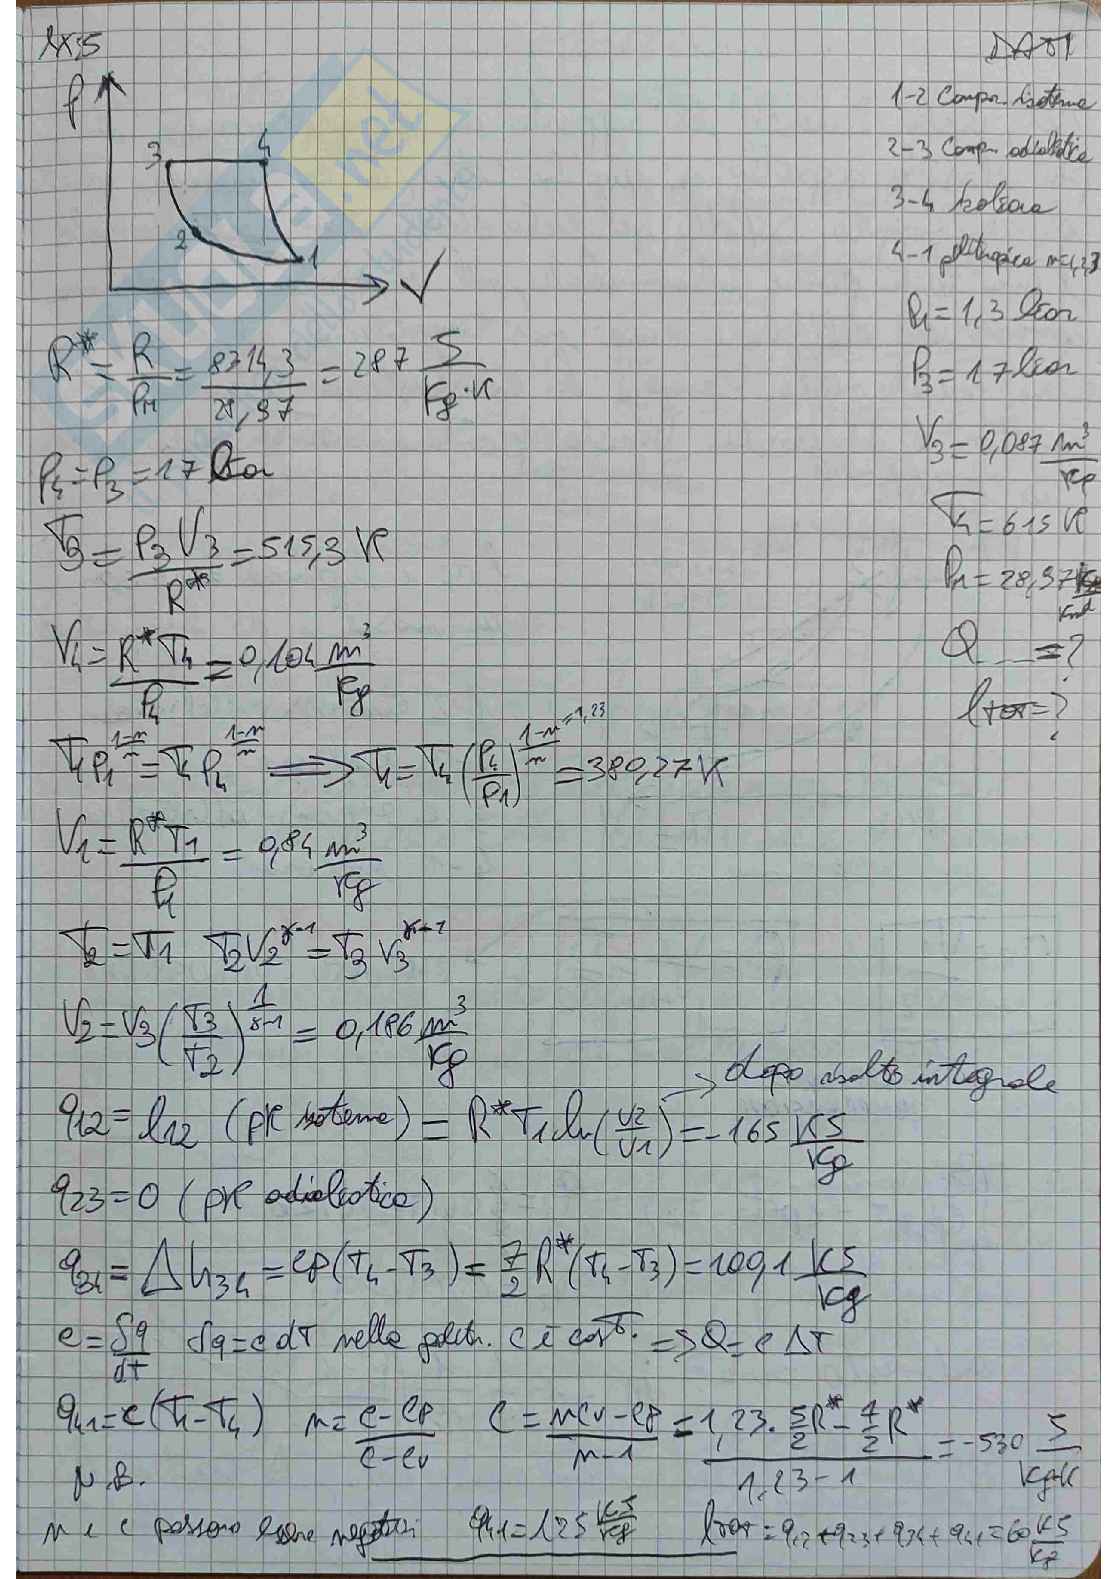 ex:5
DATI
P
3 4
2
1
V
1-2 Compr. isoterma
2-3 Compr. adiabatica
3-4 Isobara
4-1 politropica n=1,23
P1=1,3 bar
P3=17 bar
V3=0,087 m³/Kg
T4=615 K
PM=28,97 Kg/Kmol
Q___=?
lTOT=?
R*=R/PM=8314,3/28,97=287 J/Kg·K
P4=P3=17 bar
T3=P3V3/R*=515,3 K
V4=R*T4/P4=0,104 m³/Kg
T1P1^(1-n/n)=T4P4^(1-n/n) ⟹ T1=T4(P4/P1)^(1-n/n) =1,23 =380,27 K
V1=R*T1/P1=0,84 m³/Kg
T2=T1 T2V2^(γ-1)=T3V3^(γ-1)
V2=V3(T3/T2)^(1/γ-1)=0,186 m³/Kg
→ dopo risolto integrale
q12=l12 (pk isoterma)=R*T1 ln(V2/V1)=-165 KJ/Kg
q23=0 (pk adiabatica)
q34=Δh34=cp(T4-T3)=7/2 R*(T4-T3)=100,1 KJ/Kg
c=δq/dT δq=c dT nella politr. c è cost. => Q=c ΔT
q41=c(T1-T4) n=c-cp/c-cv c=ncv-cp/n-1=1,23·5/2R*-7/2R*/1,23-1=-530 J/Kg·K
N.B.
n e c possono essere negativi q41=125 KJ/Kg lTOT=q12+q23+q34+q41=60 KJ/Kg